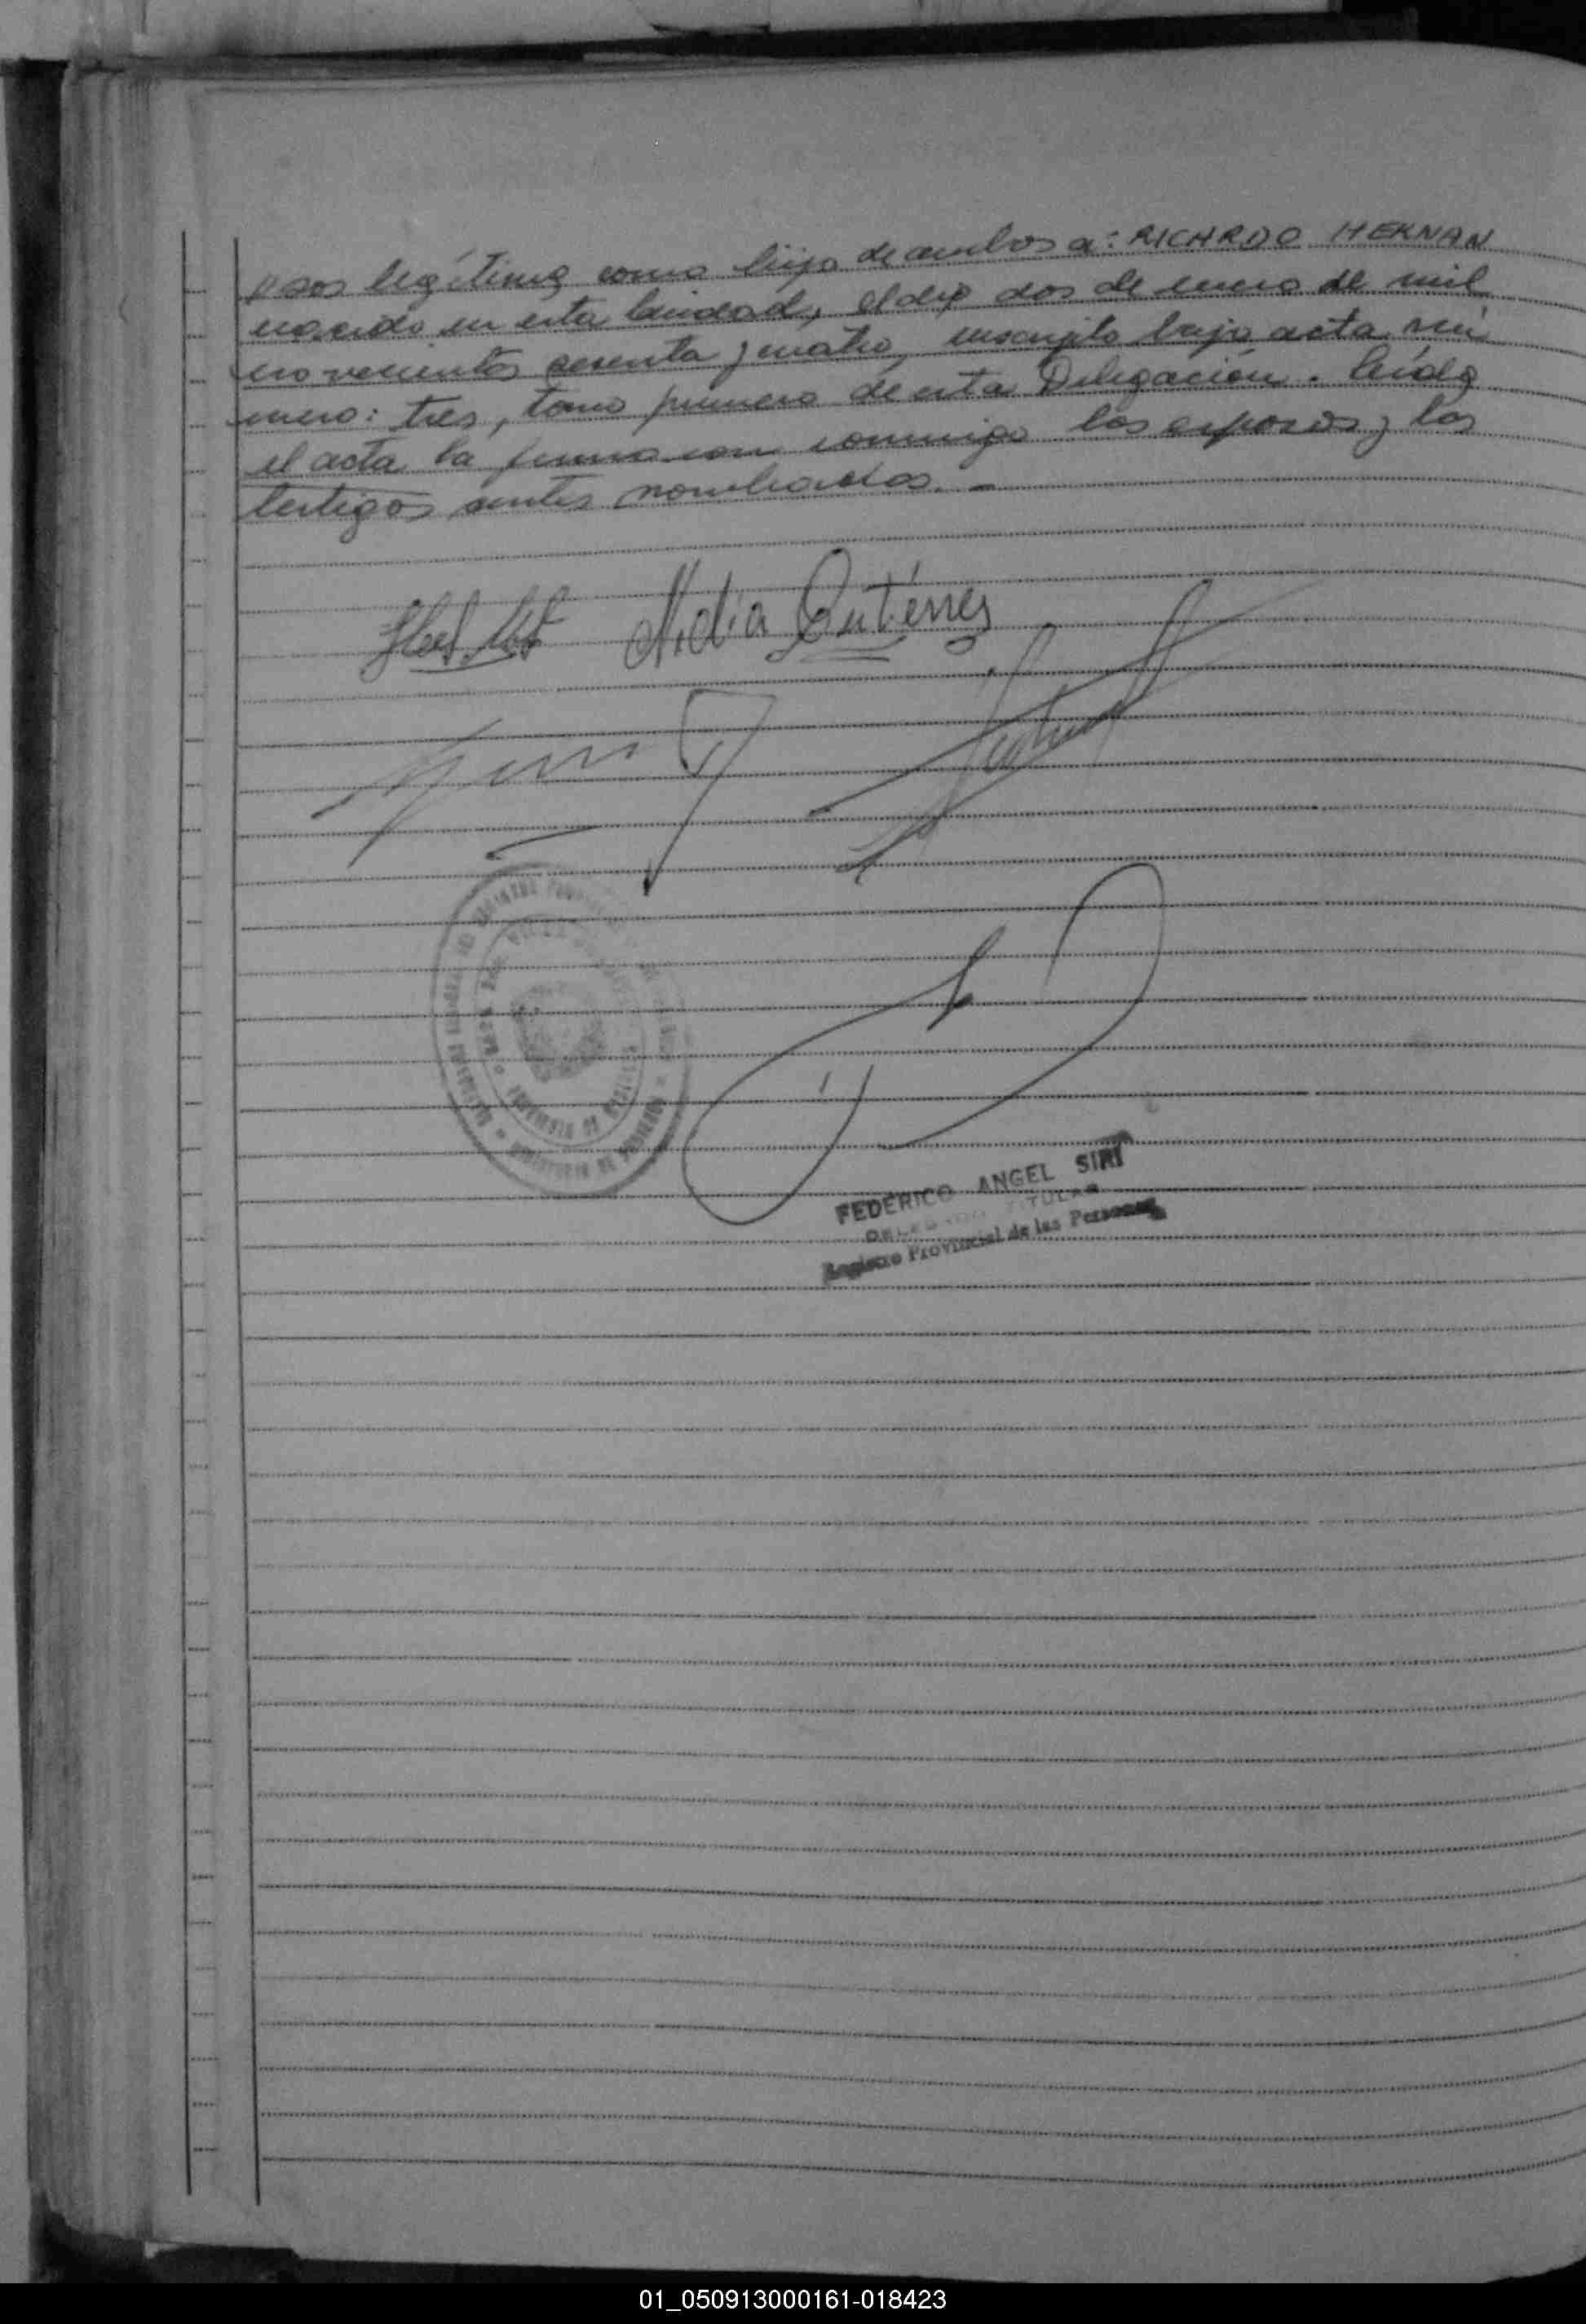 "sos legítima como hijo de ambos a: RICARDO HERNAN
nacido en esta ciudad, el día dos de enero de mil
novecientos sesenta y cuatro, inscripto bajo acta nú
mero: tres, tomo primero de esta Delegación. Leída
el acta la firma con conmigo los esposos y los
testigos antes nombrados. -
Nidia Gutiérrez
FEDERICO ANGEL SIRI
DELEGADO TITULAR
Registro Provincial de las Personas
01_050913000161-018423